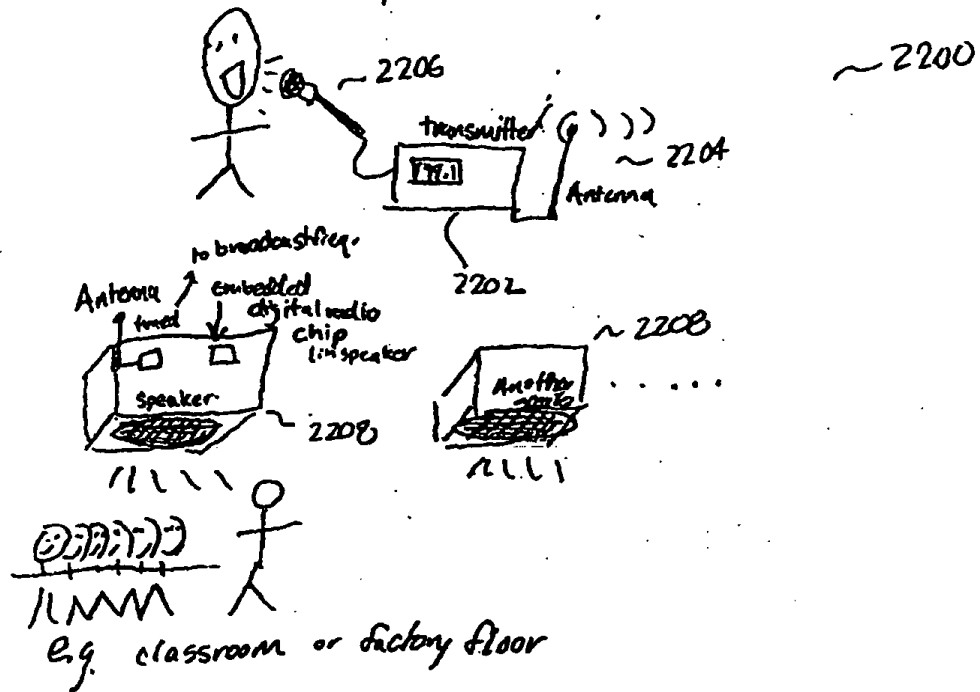 2206
2200
transmitter
2204
Antenna
2202
to broadcast freq.
Antenna
embedded
tuned
digital radio
chip
speaker
2208
Another
Speaker
2208
e.g. classroom or factory floor